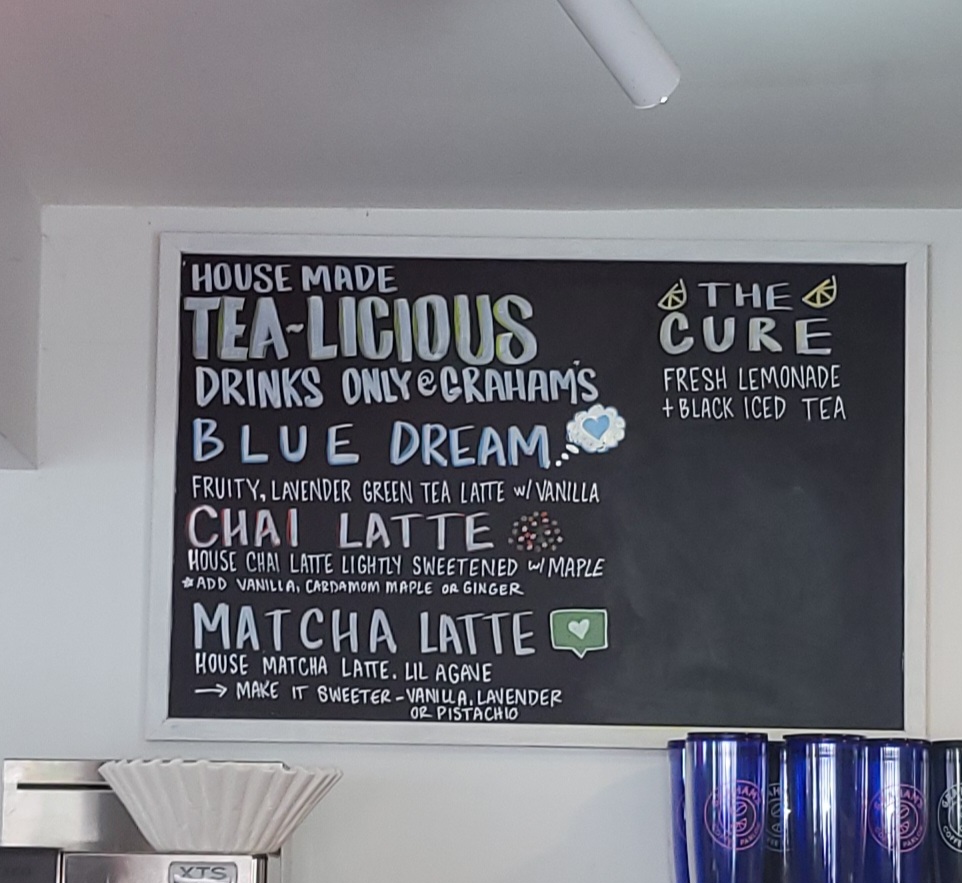 HOUSE MADE
TEA~LICIOUS
DRINKS ONLY @ GRAHAM'S
BLUE DREAM
FRUITY, LAVENDER GREEN TEA LATTE w/ VANILLA
CHAI LATTE
HOUSE CHAI LATTE LIGHTLY SWEETENED w/ MAPLE
*ADD VANILLA, CARDAMOM MAPLE OR GINGER
MATCHA LATTE
HOUSE MATCHA LATTE. LIL AGAVE
→ MAKE IT SWEETER - VANILLA, LAVENDER
OR PISTACHIO
THE
CURE
FRESH LEMONADE
+ BLACK ICED TEA
XTS
GRAHAM'S